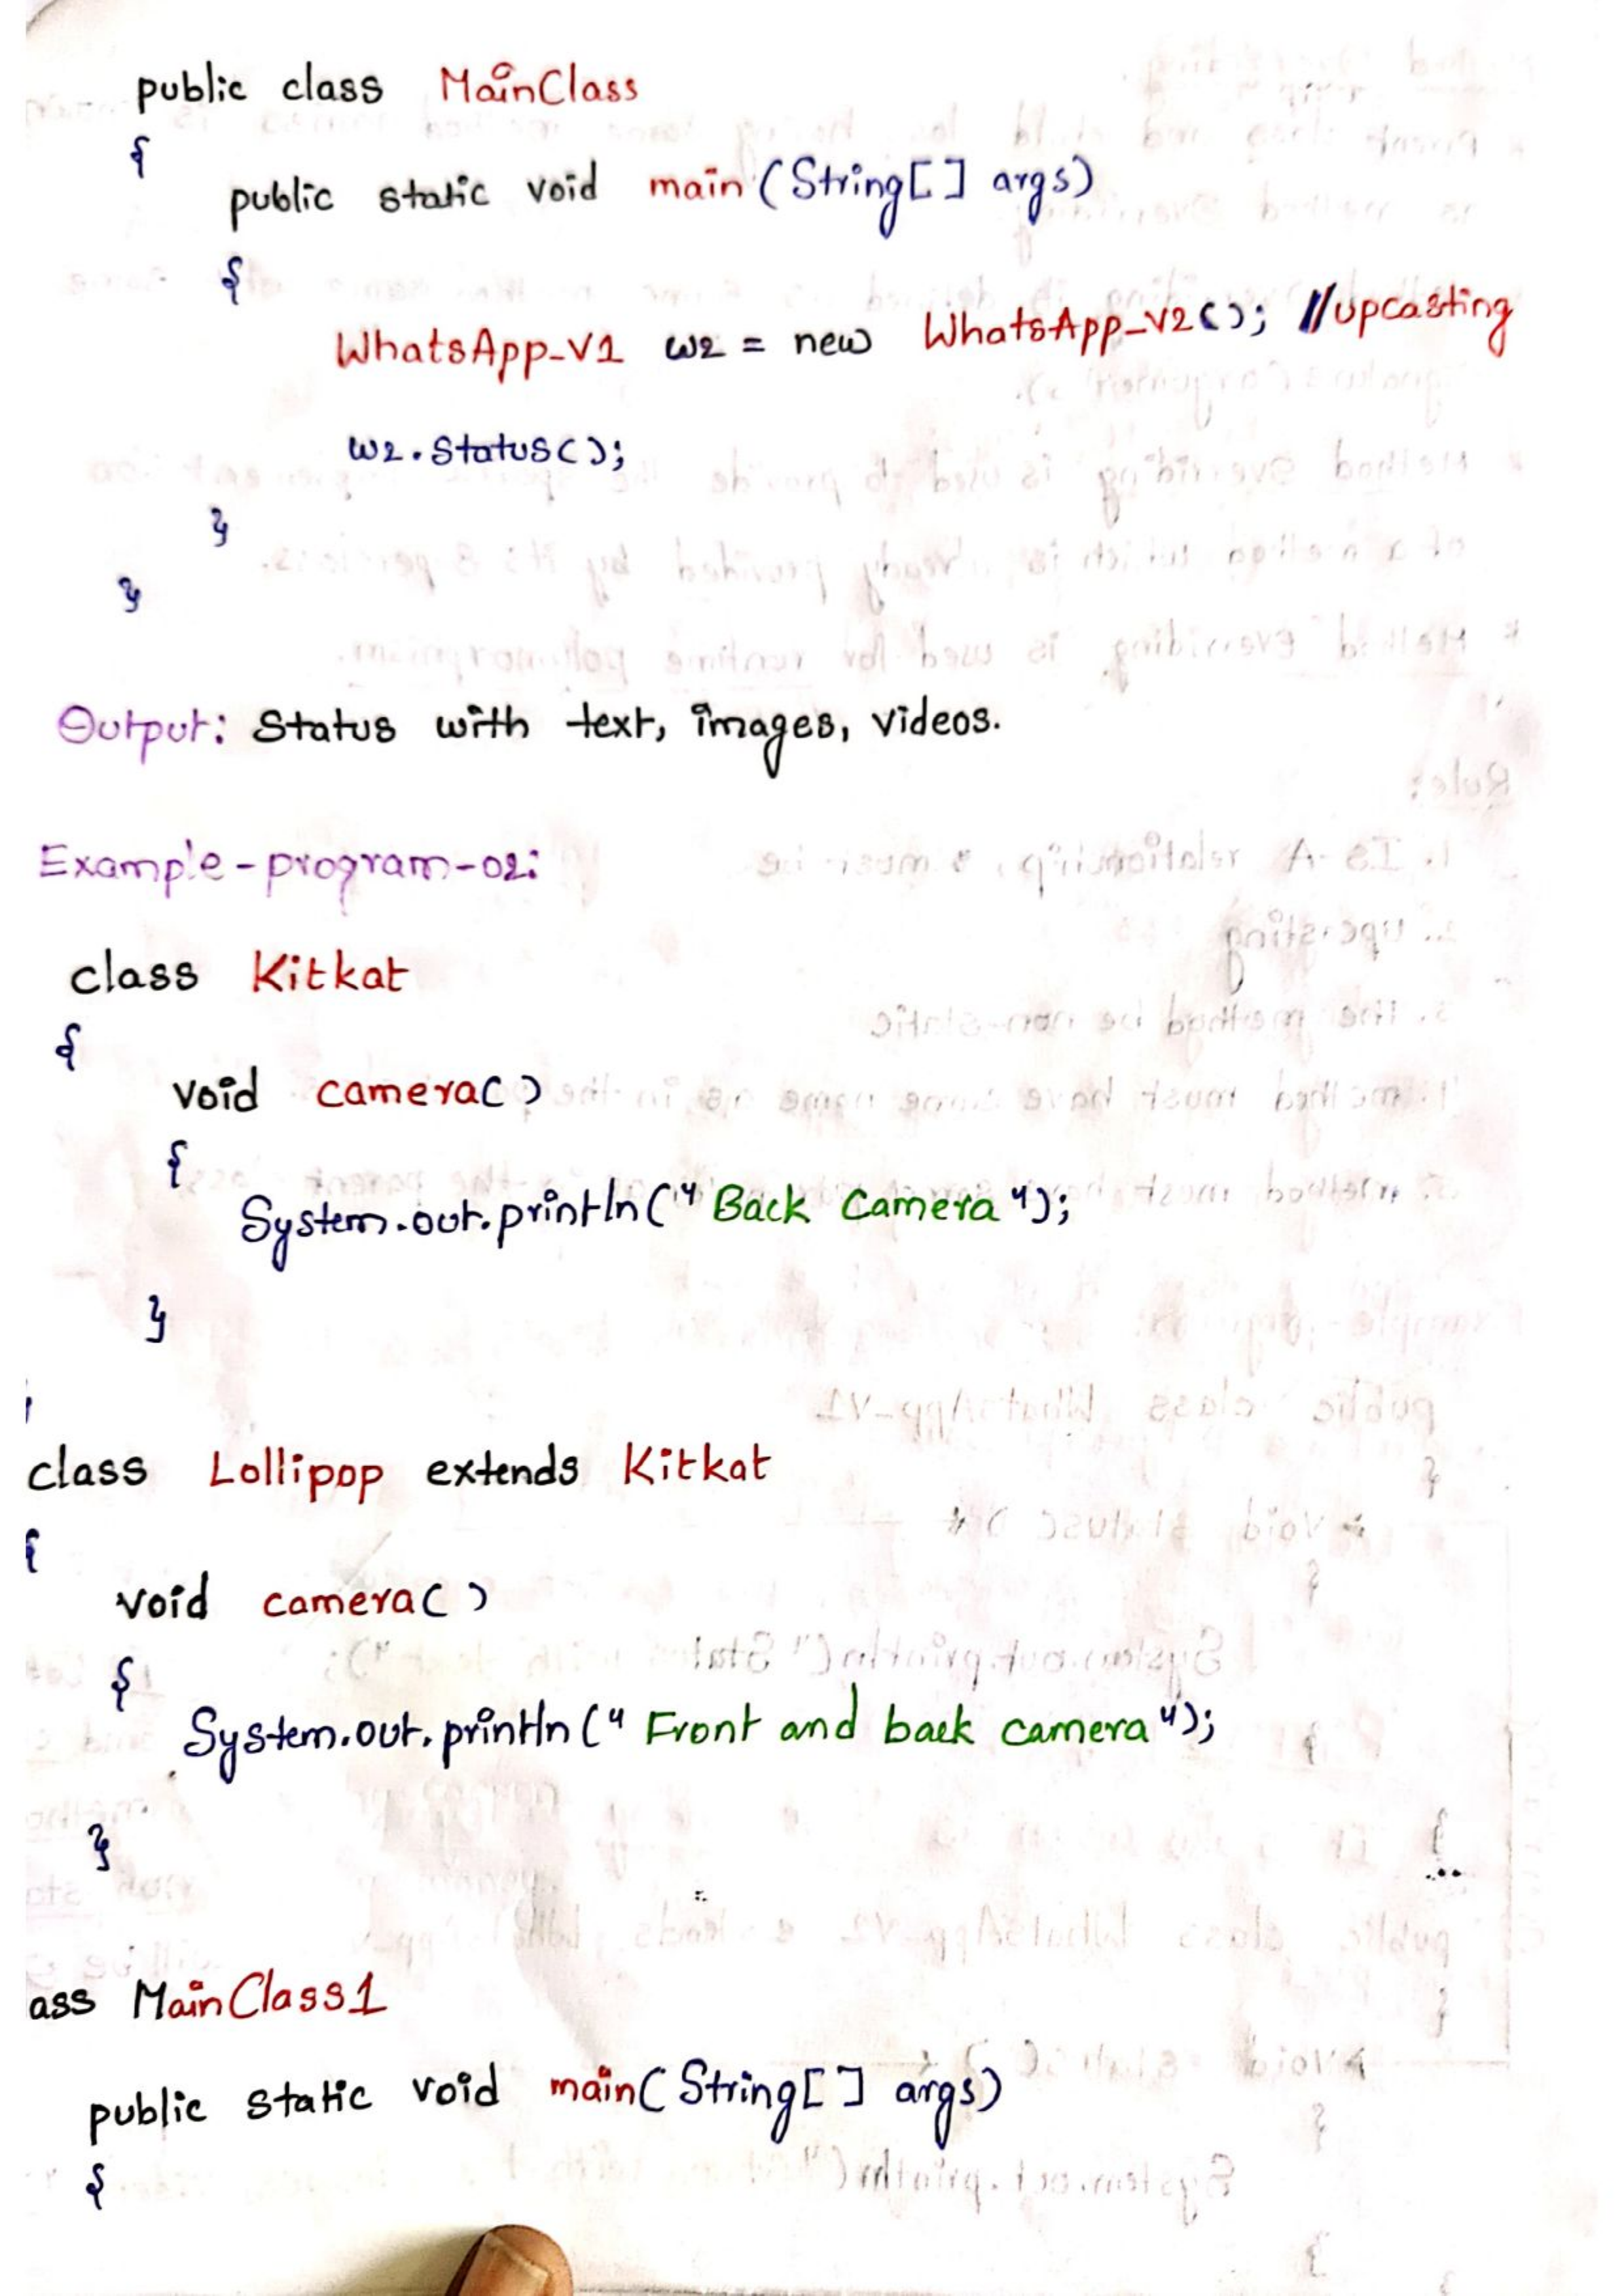 public class MainClass
{
public static void main (String[] args)
{
WhatsApp_V1 w2 = new WhatsApp_V2(); //upcasting
w2.status();
}
}
Output: Status with text, images, videos.
Example-program-02:
class Kitkat
{
void camera()
{
System.out.println("Back Camera");
}
class Lollipop extends Kitkat
{
void camera()
{
System.out.println("Front and back camera");
}
ass MainClass1
public static void main(String[] args)
{